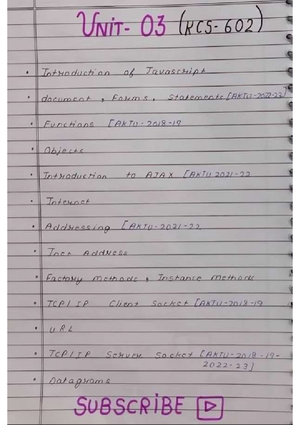 UNIT- 03 (KCS-602)
• Introduction of Javascript
• document, Forms, Statements [AKTU-2022-23]
• Functions [AKTU-2018-19
• Objects
• Introduction to AJAX [AKTU 2021-22
• Internet
• Addressing [AKTU-2021-22
• Inet Address
• Factory methods, Instance methods
• TCP/IP Client Socket [AKTU-2018-19
• URL
• TCP/IP Server Socket [AKTU-2018-19-
2022-23]
• Datagrams
SUBSCRIBE